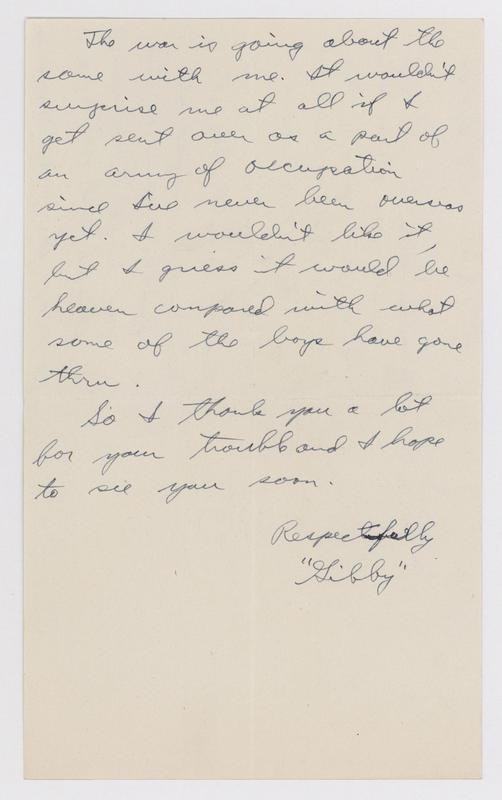 The war is going about the
same with me. It wouldn't
surprise me at all if I
get sent over as a part of
an army of occupation
since I've never been overseas
yet. I wouldn't like it,
but I guess it would be
heaven compared with what
some of the boys have gone
thru.
So I thank you a lot
for your trouble and I hope
to see you soon.
Respectfully
"Gibby"